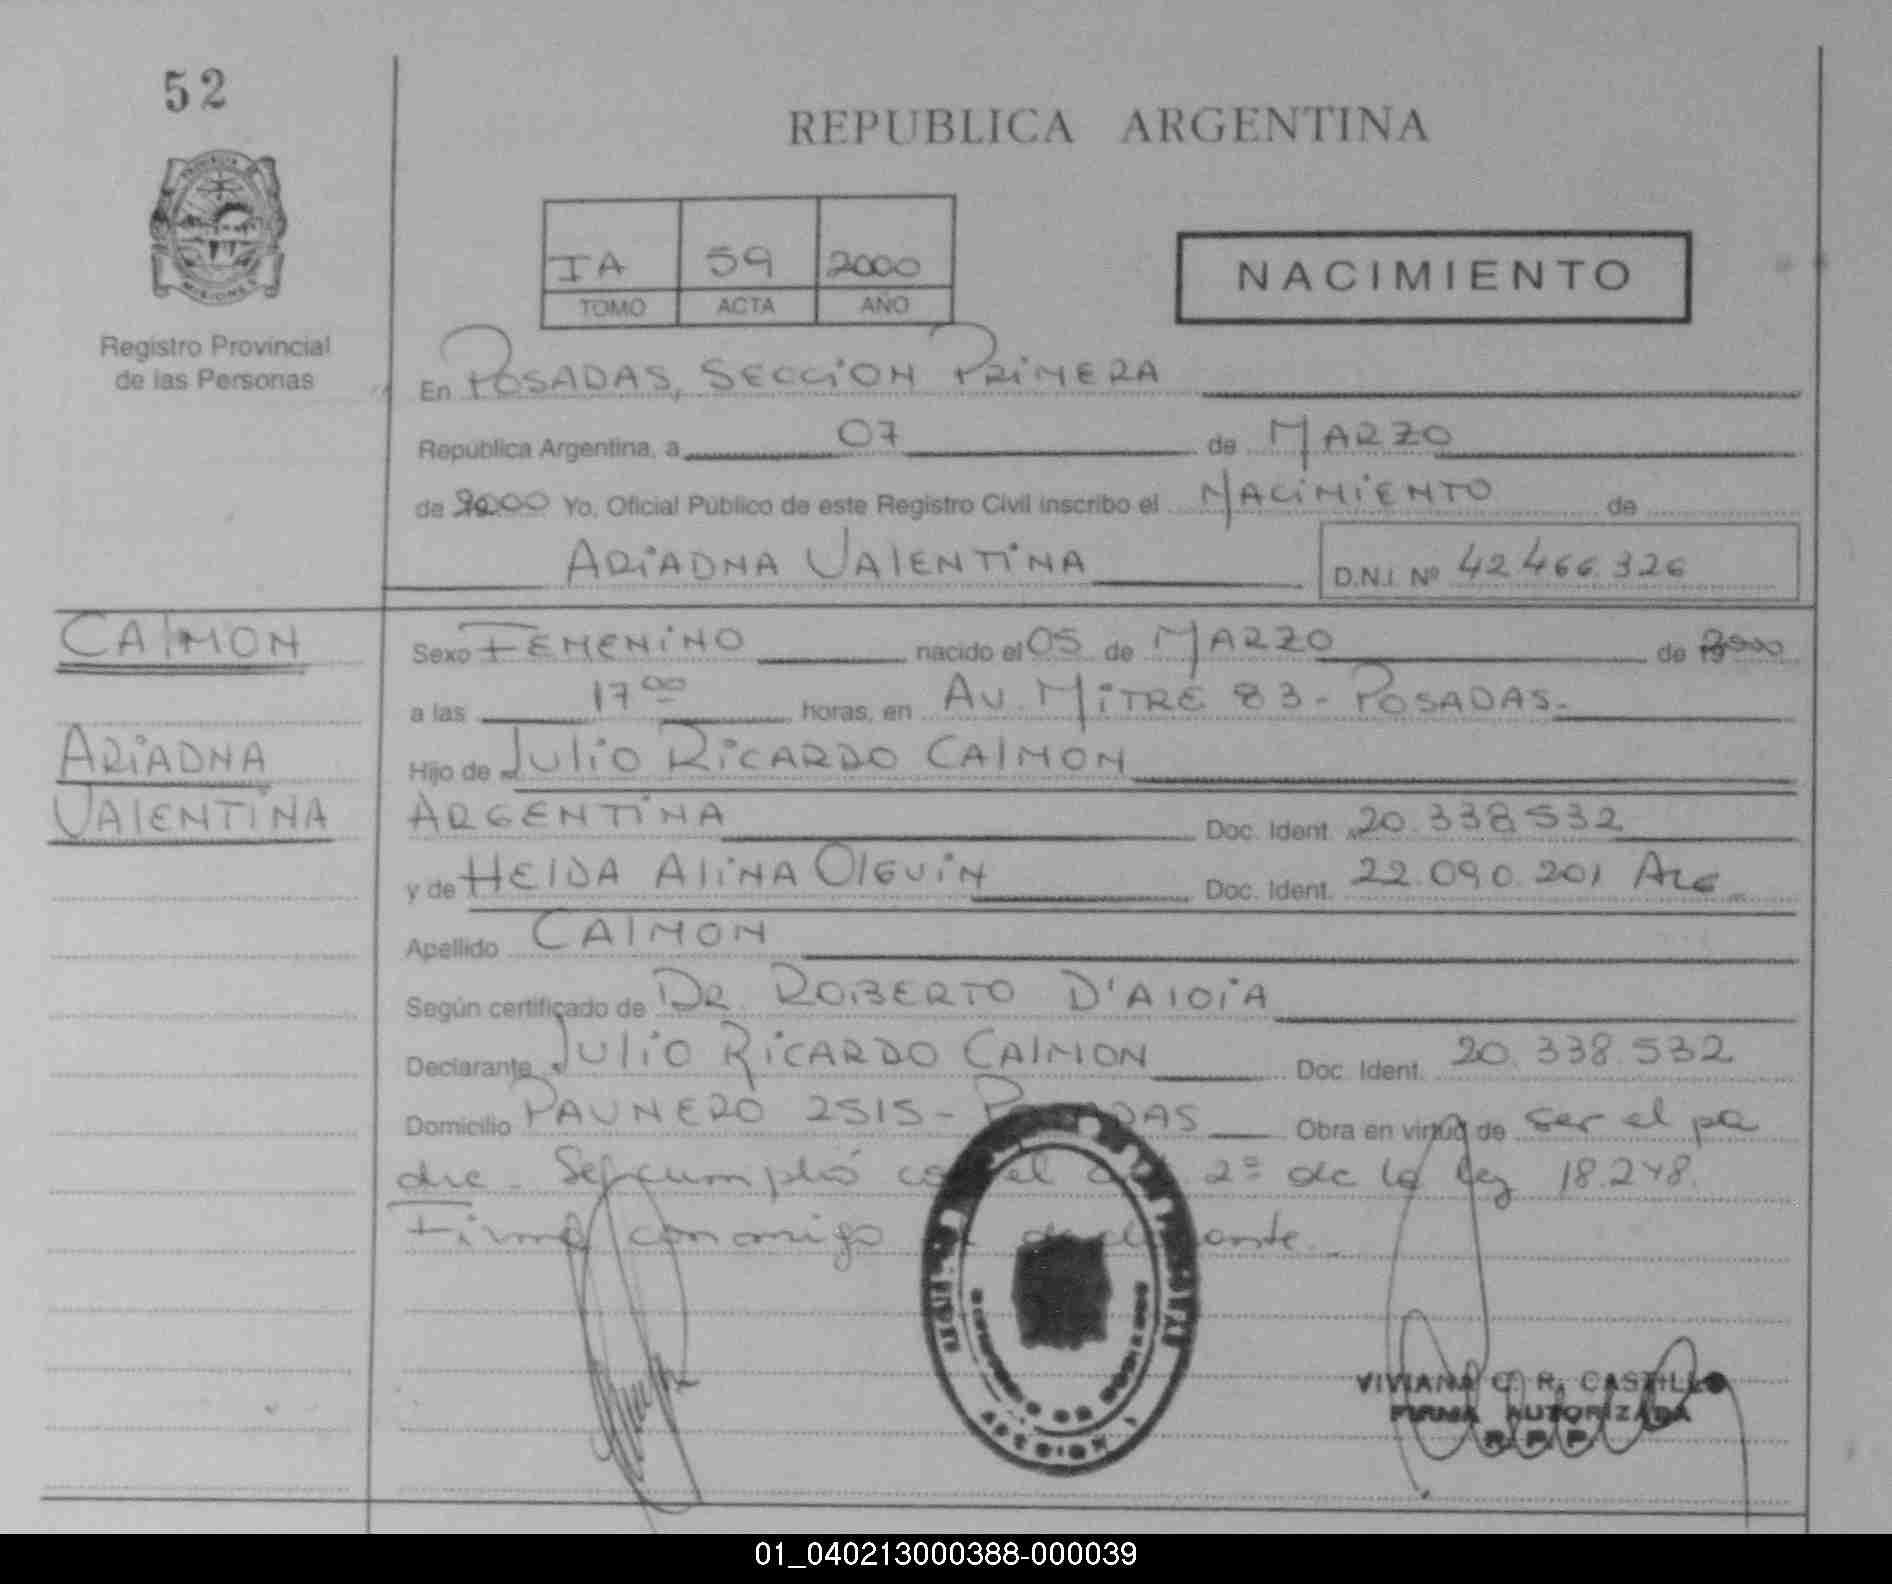 52
REPUBLICA ARGENTINA
IA 59 2000
TOMO ACTA AÑO
NACIMIENTO
MISIONES
Registro Provincial
de las Personas
En POSADAS, SECCiON PRiMERA
República Argentina, a 07 de MARZO
de 2000 Yo, Oficial Público de este Registro Civil inscribo el NACiMiENTO de
ARiADNA VAlENTiNA D.N.I. Nº 42.466.326
CAlMON
ARiADNA
VAlENTiNA
Sexo FEMENiNO nacido el 05 de MARZO de 2000
a las 17 00 horas, en AV. MiTRE 83 - POSADAS.
Hijo de JUliO RiCARDO CAlMON
ARGENTiNA Doc. Ident. 20.338.532
y de HElDA AliNA OlGUiN Doc. Ident. 22.090.201 ARG
Apellido CAlMON
Según certificado de DR. ROBERTO D'AlOiA
Declarante JUliO RiCARDO CAlMON Doc. Ident. 20.338.532
Domicilio PAUNERO 2515 - POSADAS Obra en virtud de ser el pa
dre - Se cumplió con el art 2º de la ley 18.248.
Firma conmigo el declarante.
SECCION 1
VIVIANA C. R. CASTILLO
FIRMA AUTORIZADA
R. P. P.
01_040213000388-000039